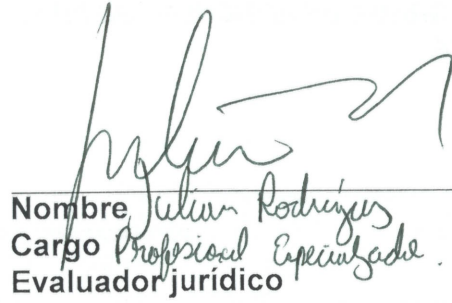 Nombre Julian Rodríguez
Cargo Profesional Especializado.
Evaluador jurídico